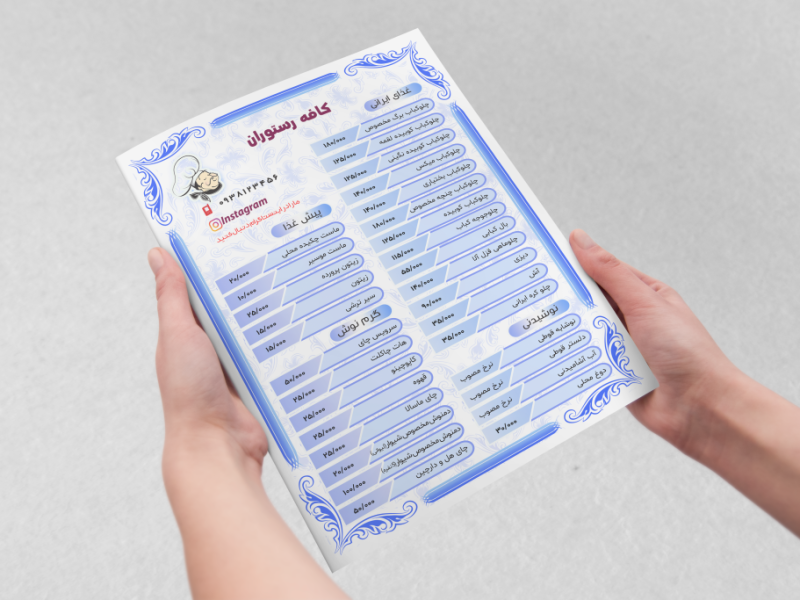 کافه رستوران
۰۹۳۸۱۲۳۴۵۶
Instagram
مارا در اینستاگرام دنبال کنید
غذای ایرانی
چلوکباب برگ مخصوص ۱۸۰/۰۰۰
چلوکباب کوبیده لقمه ۱۲۵/۰۰۰
چلوکباب کوبیده نگینی ۱۲۵/۰۰۰
چلوکباب میکس ۱۴۰/۰۰۰
چلوکباب بختیاری ۱۴۰/۰۰۰
چلوکباب چنجه مخصوص ۱۸۰/۰۰۰
چلوکباب کوبیده ۱۲۵/۰۰۰
چلوجوجه کباب ۱۱۵/۰۰۰
بال کبابی ۵۵/۰۰۰
چلوماهی قزل آلا ۱۴۰/۰۰۰
دیزی ۹۰/۰۰۰
آش ۳۵/۰۰۰
چلو کره ایرانی ۳۵/۰۰۰
نوشیدنی
نوشابه قوطی نرخ مصوب
دلستر قوطی نرخ مصوب
آب آشامیدنی نرخ مصوب
دوغ محلی ۳۰/۰۰۰
پیش غذا
ماست چکیده محلی ۲۰/۰۰۰
ماست موسیر ۱۰/۰۰۰
زیتون پرورده ۲۵/۰۰۰
زیتون ۱۵/۰۰۰
سیر ترشی ۱۵/۰۰۰
گرم نوش
سرویس چای ۵۰/۰۰۰
هات چاکلت ۲۵/۰۰۰
کاپوچینو ۲۵/۰۰۰
قهوه ۲۵/۰۰۰
چای ماسالا ۲۵/۰۰۰
دمنوش مخصوص شیوار ۲۰/۰۰۰
دمنوش مخصوص شیوار ۱۰۰/۰۰۰
چای هل و دارچین ۵۰/۰۰۰